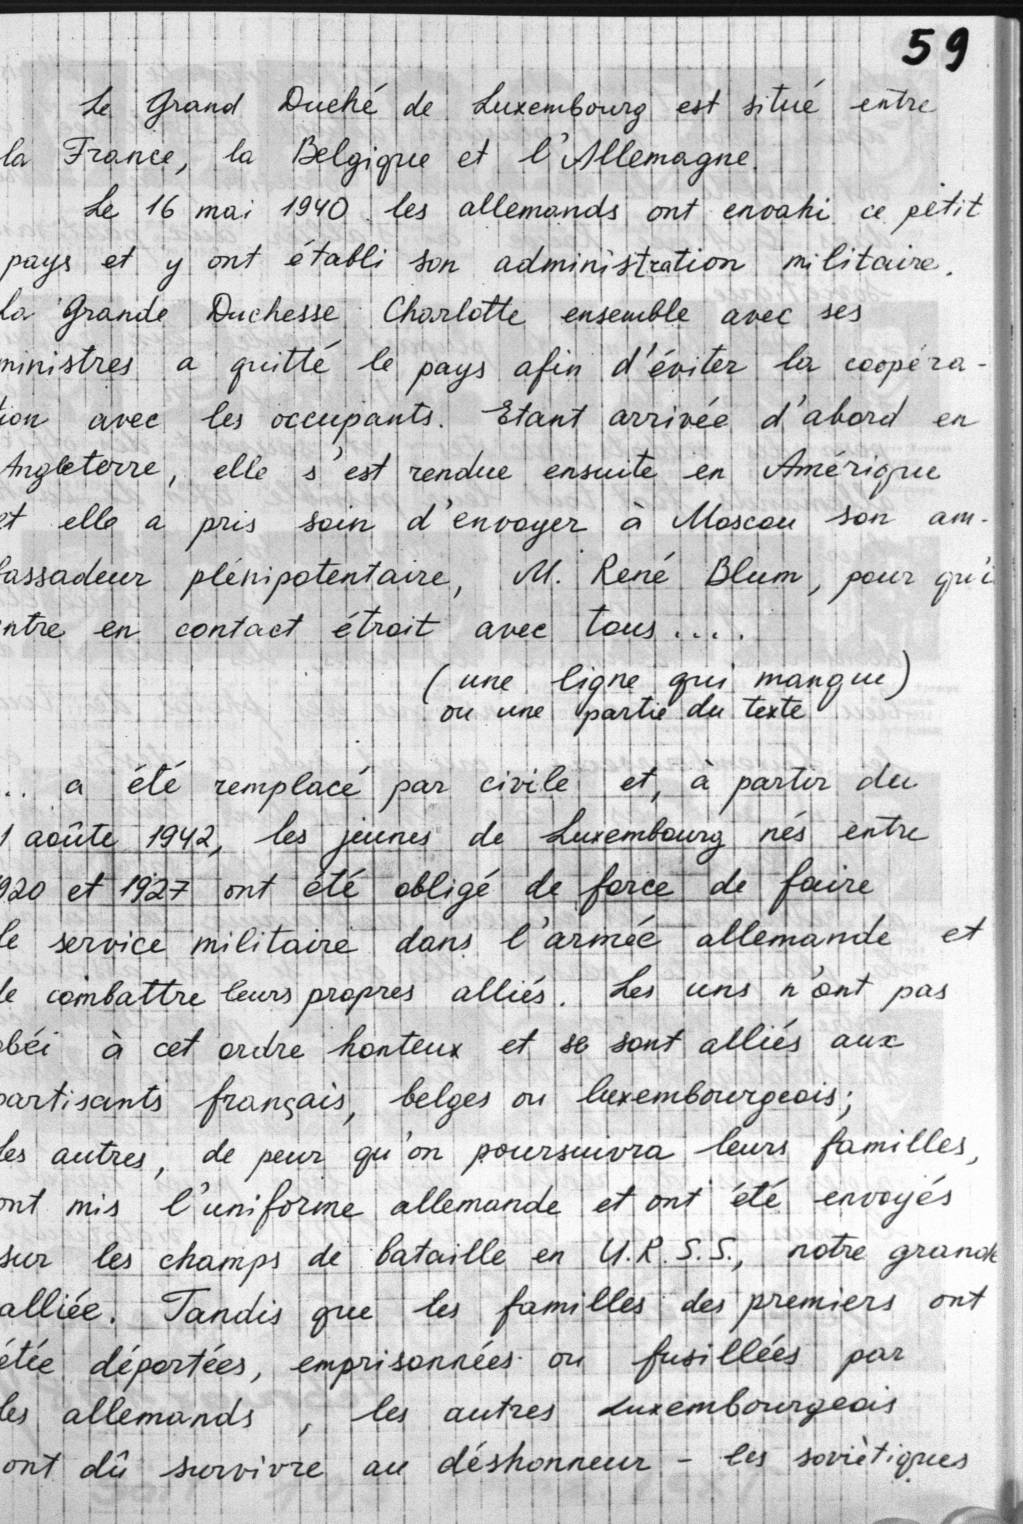 59
Le Grand Duché de Luxembourg est situé entre
la France, la Belgique et l'Allemagne.
Le 16 mai 1940 les allemands ont envahi ce petit
pays et y ont établi son administration militaire.
La Grande Duchesse Charlotte ensemble avec ses
ministres a quitté le pays afin d'éviter la coopéra-
tion avec les occupants. Etant arrivée d'abord en
Angleterre, elle s'est rendue ensuite en Amérique
et elle a pris soin d'envoyer à Moscou son am-
bassadeur plénipotentaire, M. René Blum, pour qu'i
entre en contact étroit avec tous....
(une ligne qui manque)
ou une partie du texte
... a été remplacé par civile et, à partir du
1 aoûte 1942, les jeunes de Luxembourg nés entre
920 et 1927 ont été obligé de force de faire
le service militaire dans l'armée allemande et
de combattre leurs propres alliés. Les uns n'ont pas
obéi à cet ordre honteux et se sont alliés aux
partisants français, belges ou luxembourgeois;
les autres, de peur qu'on poursuivra leurs familles,
ont mis l'uniforme allemande et ont été envoyés
sur les champs de bataille en U.R.S.S., notre grande
alliée. Tandis que les familles des premiers ont
étée déportées, emprisonnées ou fusillées par
les allemands, les autres Luxembourgeois
ont dû survivre au déshonneur - les soviètiques